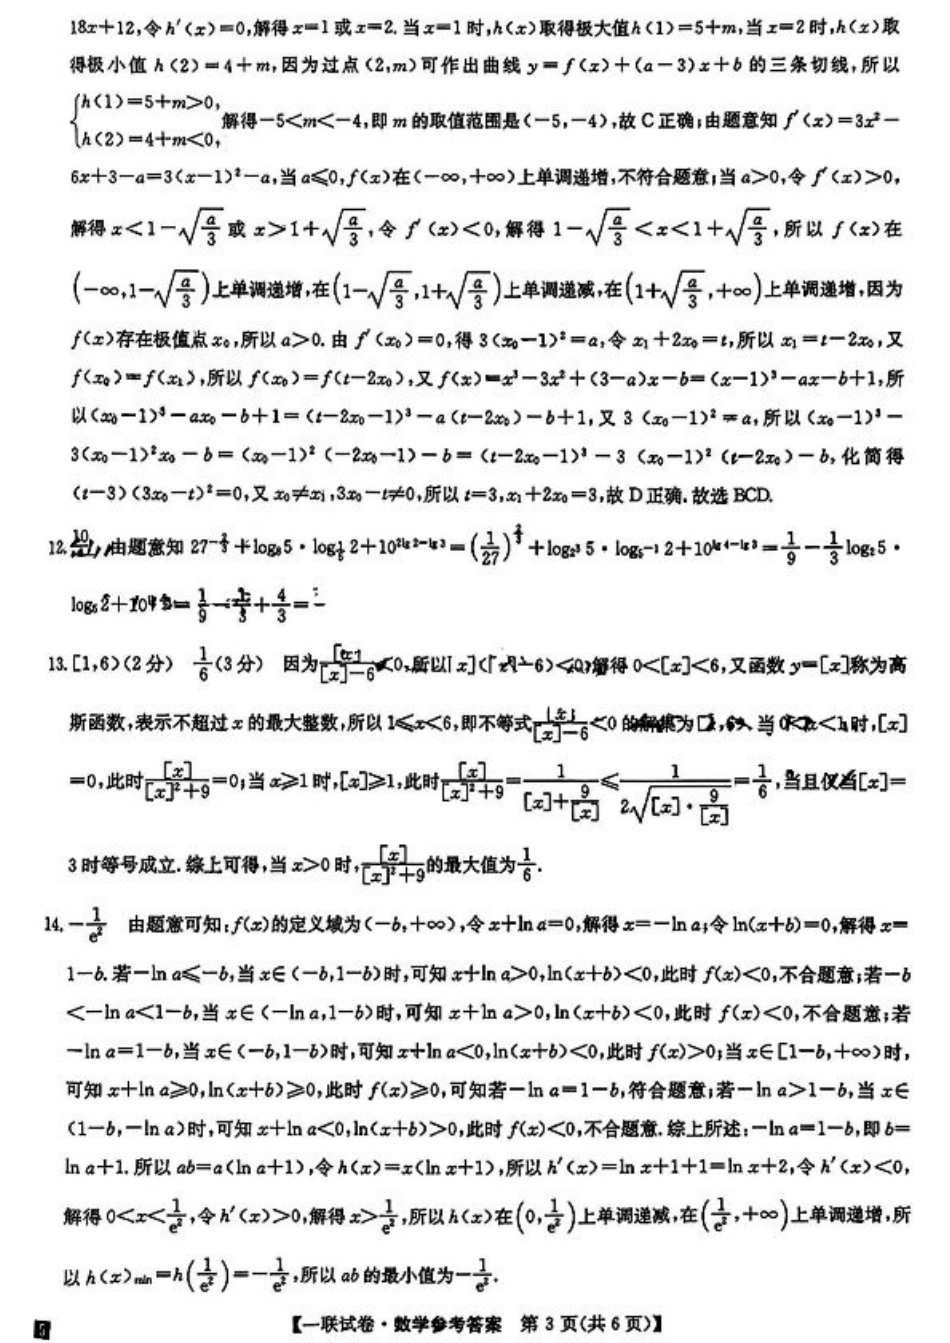 18x+12,令h′(x)=0,解得x=1或x=2.当x=1时,h(x)取得极大值h(1)=5+m,当x=2时,h(x)取
得极小值h(2)=4+m,因为过点(2,m)可作出曲线y=f(x)+(a-3)x+b的三条切线,所以
{h(1)=5+m>0,
h(2)=4+m<0, 解得-5<m<-4,即m的取值范围是(-5,-4),故C正确;由题意知f′(x)=3x²-
6x+3-a=3(x-1)²-a,当a≤0,f(x)在(-∞,+∞)上单调递增,不符合题意;当a>0,令f′(x)>0,
解得x<1-√(a/3)或x>1+√(a/3),令f′(x)<0,解得1-√(a/3)<x<1+√(a/3),所以f(x)在
(-∞,1-√(a/3))上单调递增,在(1-√(a/3),1+√(a/3))上单调递减,在(1+√(a/3),+∞)上单调递增,因为
f(x)存在极值点x₀,所以a>0.由f′(x₀)=0,得3(x₀-1)²=a,令x₁+2x₀=t,所以x₁=t-2x₀,又
f(x₀)=f(x₁),所以f(x₀)=f(t-2x₀),又f(x)=x³-3x²+(3-a)x-b=(x-1)³-ax-b+1,所
以(x₀-1)³-ax₀-b+1=(t-2x₀-1)³-a(t-2x₀)-b+1,又3(x₀-1)²=a,所以(x₀-1)³-
3(x₀-1)²x₀-b=(x₀-1)²(-2x₀-1)-b=(t-2x₀-1)³-3(x₀-1)²(t-2x₀)-b,化简得
(t-3)(3x₀-t)²=0,又x₀≠x₁,3x₀-t≠0,所以t=3,x₁+2x₀=3,故D正确.故选BCD.
12. 由题意知27^(-2/3)+log₈5·log_(1/5)2+10^(2lg2-lg3)=(1/27)^(2/3)+log_(2³)5·log_(5⁻¹)2+10^(lg4-lg3)=1/9-1/3log₂5·
log₅2+10 =1/9-1/3+4/3=
13.[1,6)(2分) 1/6(3分) 因为[x]/([x]-6)<0,所以[x]([x]-6)<0,解得0<[x]<6,又函数y=[x]称为高
斯函数,表示不超过x的最大整数,所以1≤x<6,即不等式[x]/([x]-6)<0的解集为[1,6).当0<x<1时,[x]
=0,此时[x]/([x]²+9)=0;当x≥1时,[x]≥1,此时[x]/([x]²+9)=1/([x]+9/[x])≤1/(2√([x]·9/[x]))=1/6,当且仅当[x]=
3时等号成立.综上可得,当x>0时,[x]/([x]²+9)的最大值为1/6.
14.-1/e² 由题意可知:f(x)的定义域为(-b,+∞),令x+ln a=0,解得x=-ln a;令ln(x+b)=0,解得x=
1-b.若-ln a≤-b,当x∈(-b,1-b)时,可知x+ln a>0,ln(x+b)<0,此时f(x)<0,不合题意;若-b
<-ln a<1-b,当x∈(-ln a,1-b)时,可知x+ln a>0,ln(x+b)<0,此时f(x)<0,不合题意;若
-ln a=1-b,当x∈(-b,1-b)时,可知x+ln a<0,ln(x+b)<0,此时f(x)>0;当x∈[1-b,+∞)时,
可知x+ln a≥0,ln(x+b)≥0,此时f(x)≥0,可知若-ln a=1-b,符合题意;若-ln a>1-b,当x∈
(1-b,-ln a)时,可知x+ln a<0,ln(x+b)>0,此时f(x)<0,不合题意.综上所述:-ln a=1-b,即b=
ln a+1.所以ab=a(ln a+1),令h(x)=x(ln x+1),所以h′(x)=ln x+1+1=ln x+2,令h′(x)<0,
解得0<x<1/e²,令h′(x)>0,解得x>1/e²,所以h(x)在(0,1/e²)上单调递减,在(1/e²,+∞)上单调递增,所
以h(x)min=h(1/e²)=-1/e²,所以ab的最小值为-1/e².
【一联试卷·数学参考答案 第3页(共6页)】